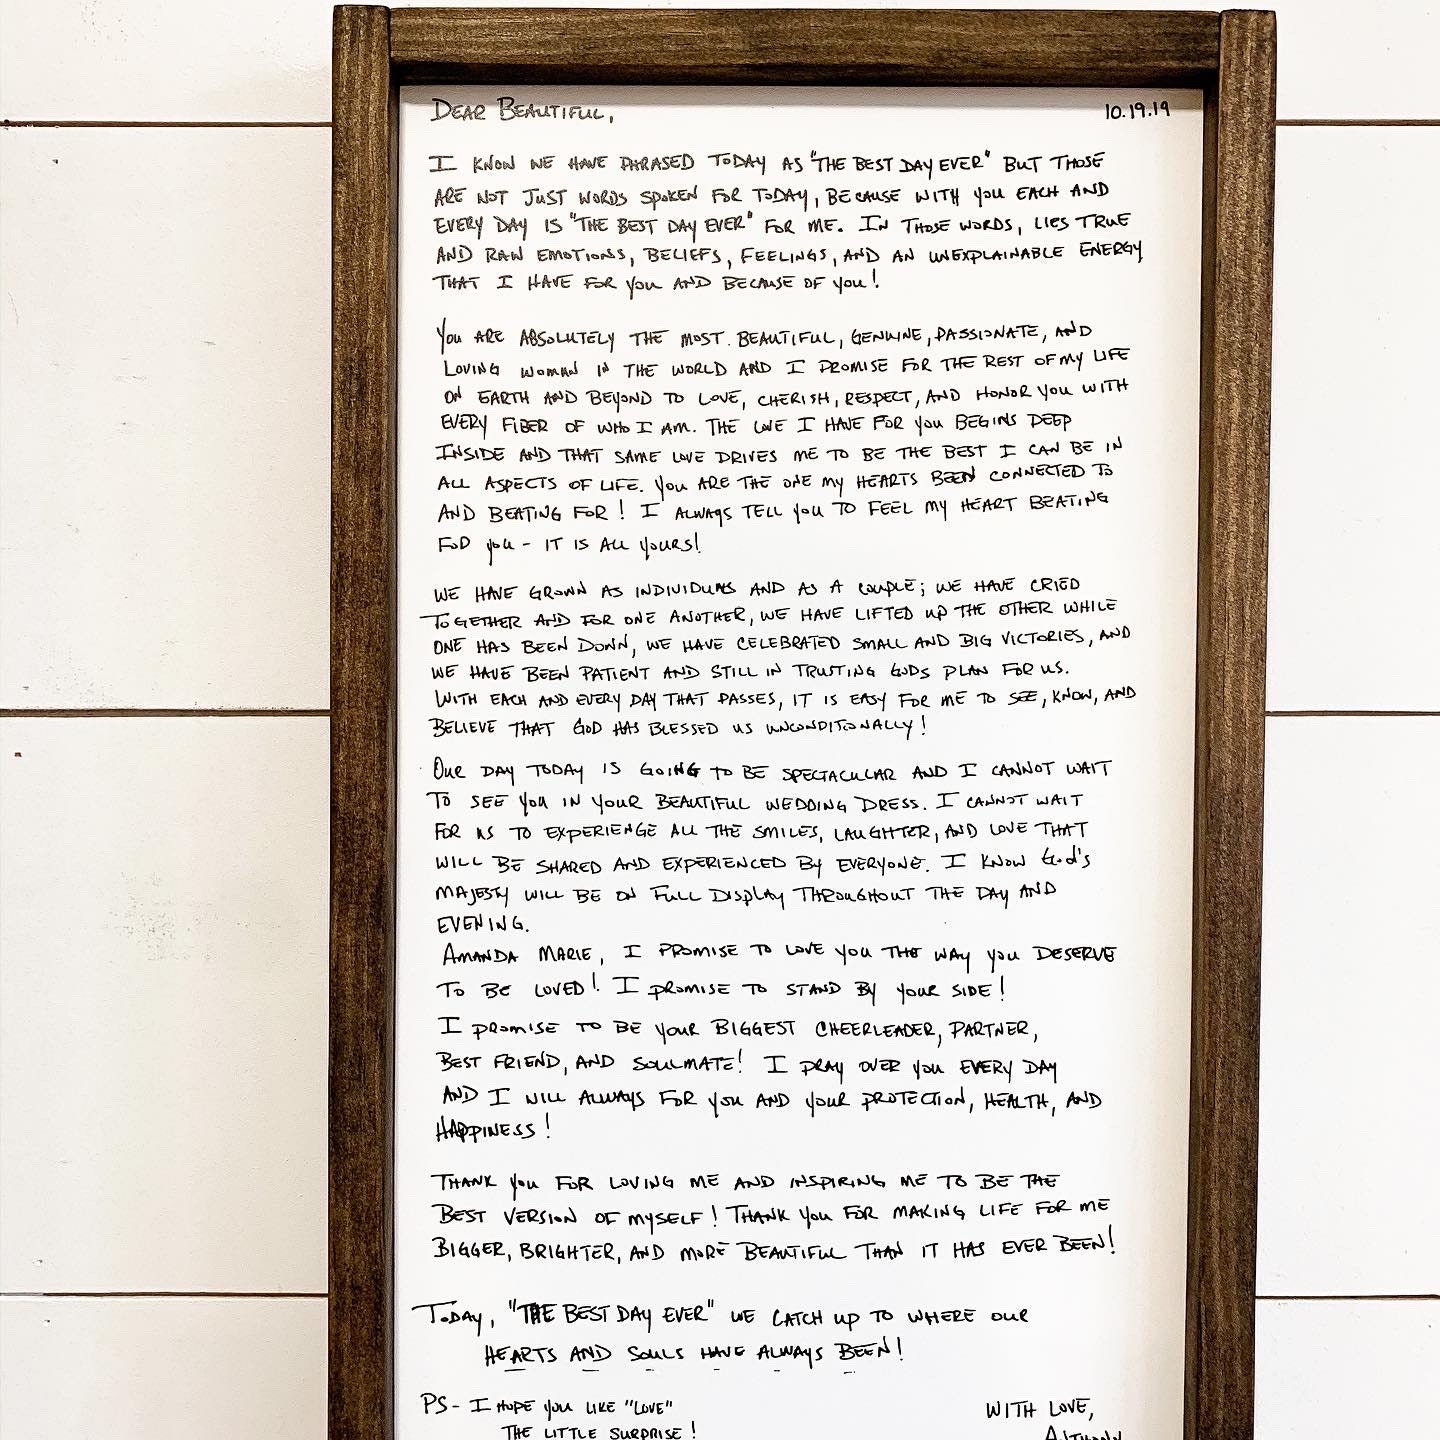 DEAR BEAUTIFUL,
10.19.19
I KNOW WE HAVE PHRASED TODAY AS "THE BEST DAY EVER" BUT THOSE
ARE NOT JUST WORDS SPOKEN FOR TODAY, BECAUSE WITH YOU EACH AND
EVERY DAY IS "THE BEST DAY EVER" FOR ME. IN THOSE WORDS, LIES TRUE
AND RAW EMOTIONS, BELIEFS, FEELINGS, AND AN UNEXPLAINABLE ENERGY
THAT I HAVE FOR YOU AND BECAUSE OF YOU!
YOU ARE ABSOLUTELY THE MOST BEAUTIFUL, GENUINE, PASSIONATE, AND
LOVING WOMAN IN THE WORLD AND I PROMISE FOR THE REST OF MY LIFE
ON EARTH AND BEYOND TO LOVE, CHERISH, RESPECT, AND HONOR YOU WITH
EVERY FIBER OF WHO I AM. THE LOVE I HAVE FOR YOU BEGINS DEEP
INSIDE AND THAT SAME LOVE DRIVES ME TO BE THE BEST I CAN BE IN
ALL ASPECTS OF LIFE. YOU ARE THE ONE MY HEARTS BEEN CONNECTED TO
AND BEATING FOR! I ALWAYS TELL YOU TO FEEL MY HEART BEATING
FOR YOU - IT IS ALL YOURS!
WE HAVE GROWN AS INDIVIDUALS AND AS A COUPLE; WE HAVE CRIED
TOGETHER AND FOR ONE ANOTHER, WE HAVE LIFTED UP THE OTHER WHILE
ONE HAS BEEN DOWN, WE HAVE CELEBRATED SMALL AND BIG VICTORIES, AND
WE HAVE BEEN PATIENT AND STILL IN TRUSTING GODS PLAN FOR US.
WITH EACH AND EVERY DAY THAT PASSES, IT IS EASY FOR ME TO SEE, KNOW, AND
BELIEVE THAT GOD HAS BLESSED US UNCONDITONALLY!
OUR DAY TODAY IS GOING TO BE SPECTACULAR AND I CANNOT WAIT
TO SEE YOU IN YOUR BEAUTIFUL WEDDING DRESS. I CANNOT WAIT
FOR US TO EXPERIENGE ALL THE SMILES, LAUGHTER, AND LOVE THAT
WILL BE SHARED AND EXPERIENCED BY EVERYONE. I KNOW God's
MAJESTY WILL BE ON FULL DISPLAY THROUGHOUT THE DAY AND
EVENING.
AMANDA MARIE, I PROMISE TO LOVE YOU THE WAY YOU DESERVE
TO BE LOVED! I PROMISE TO STAND BY YOUR SIDE!
I PROMISE TO BE YOUR BIGGEST CHEERLEADER, PARTNER,
BEST FRIEND, AND SOULMATE! I PRAY OVER YOU EVERY DAY
AND I WILL ALWAYS FOR YOU AND YOUR PROTECTION, HEALTH, AND
HAPPINESS!
THANK YOU FOR LOVING ME AND INSPIRING ME TO BE THE
BEST VERSION OF MYSELF! THANK YOU FOR MAKING LIFE FOR ME
BIGGER, BRIGHTER, AND MORE BEAUTIFUL THAN IT HAS EVER BEEN!
TODAY, "THE BEST DAY EVER" WE CATCH UP TO WHERE OUR
HEARTS AND SOULS HAVE ALWAYS BEEN!
PS- I HOPE YOU LIKE "LOVE"
THE LITTLE SURPRISE!
WITH LOVE,
ANTHONY